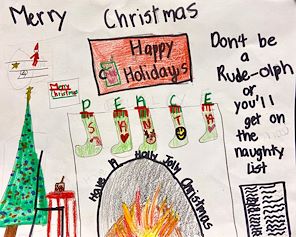 Merry Christmas
Happy
Holidays
Merry
Christmas
PEACE
Have A Holly Jolly Christmas
Don't be
a
Rude-olph
or
you'll
get on
the
naughty
list